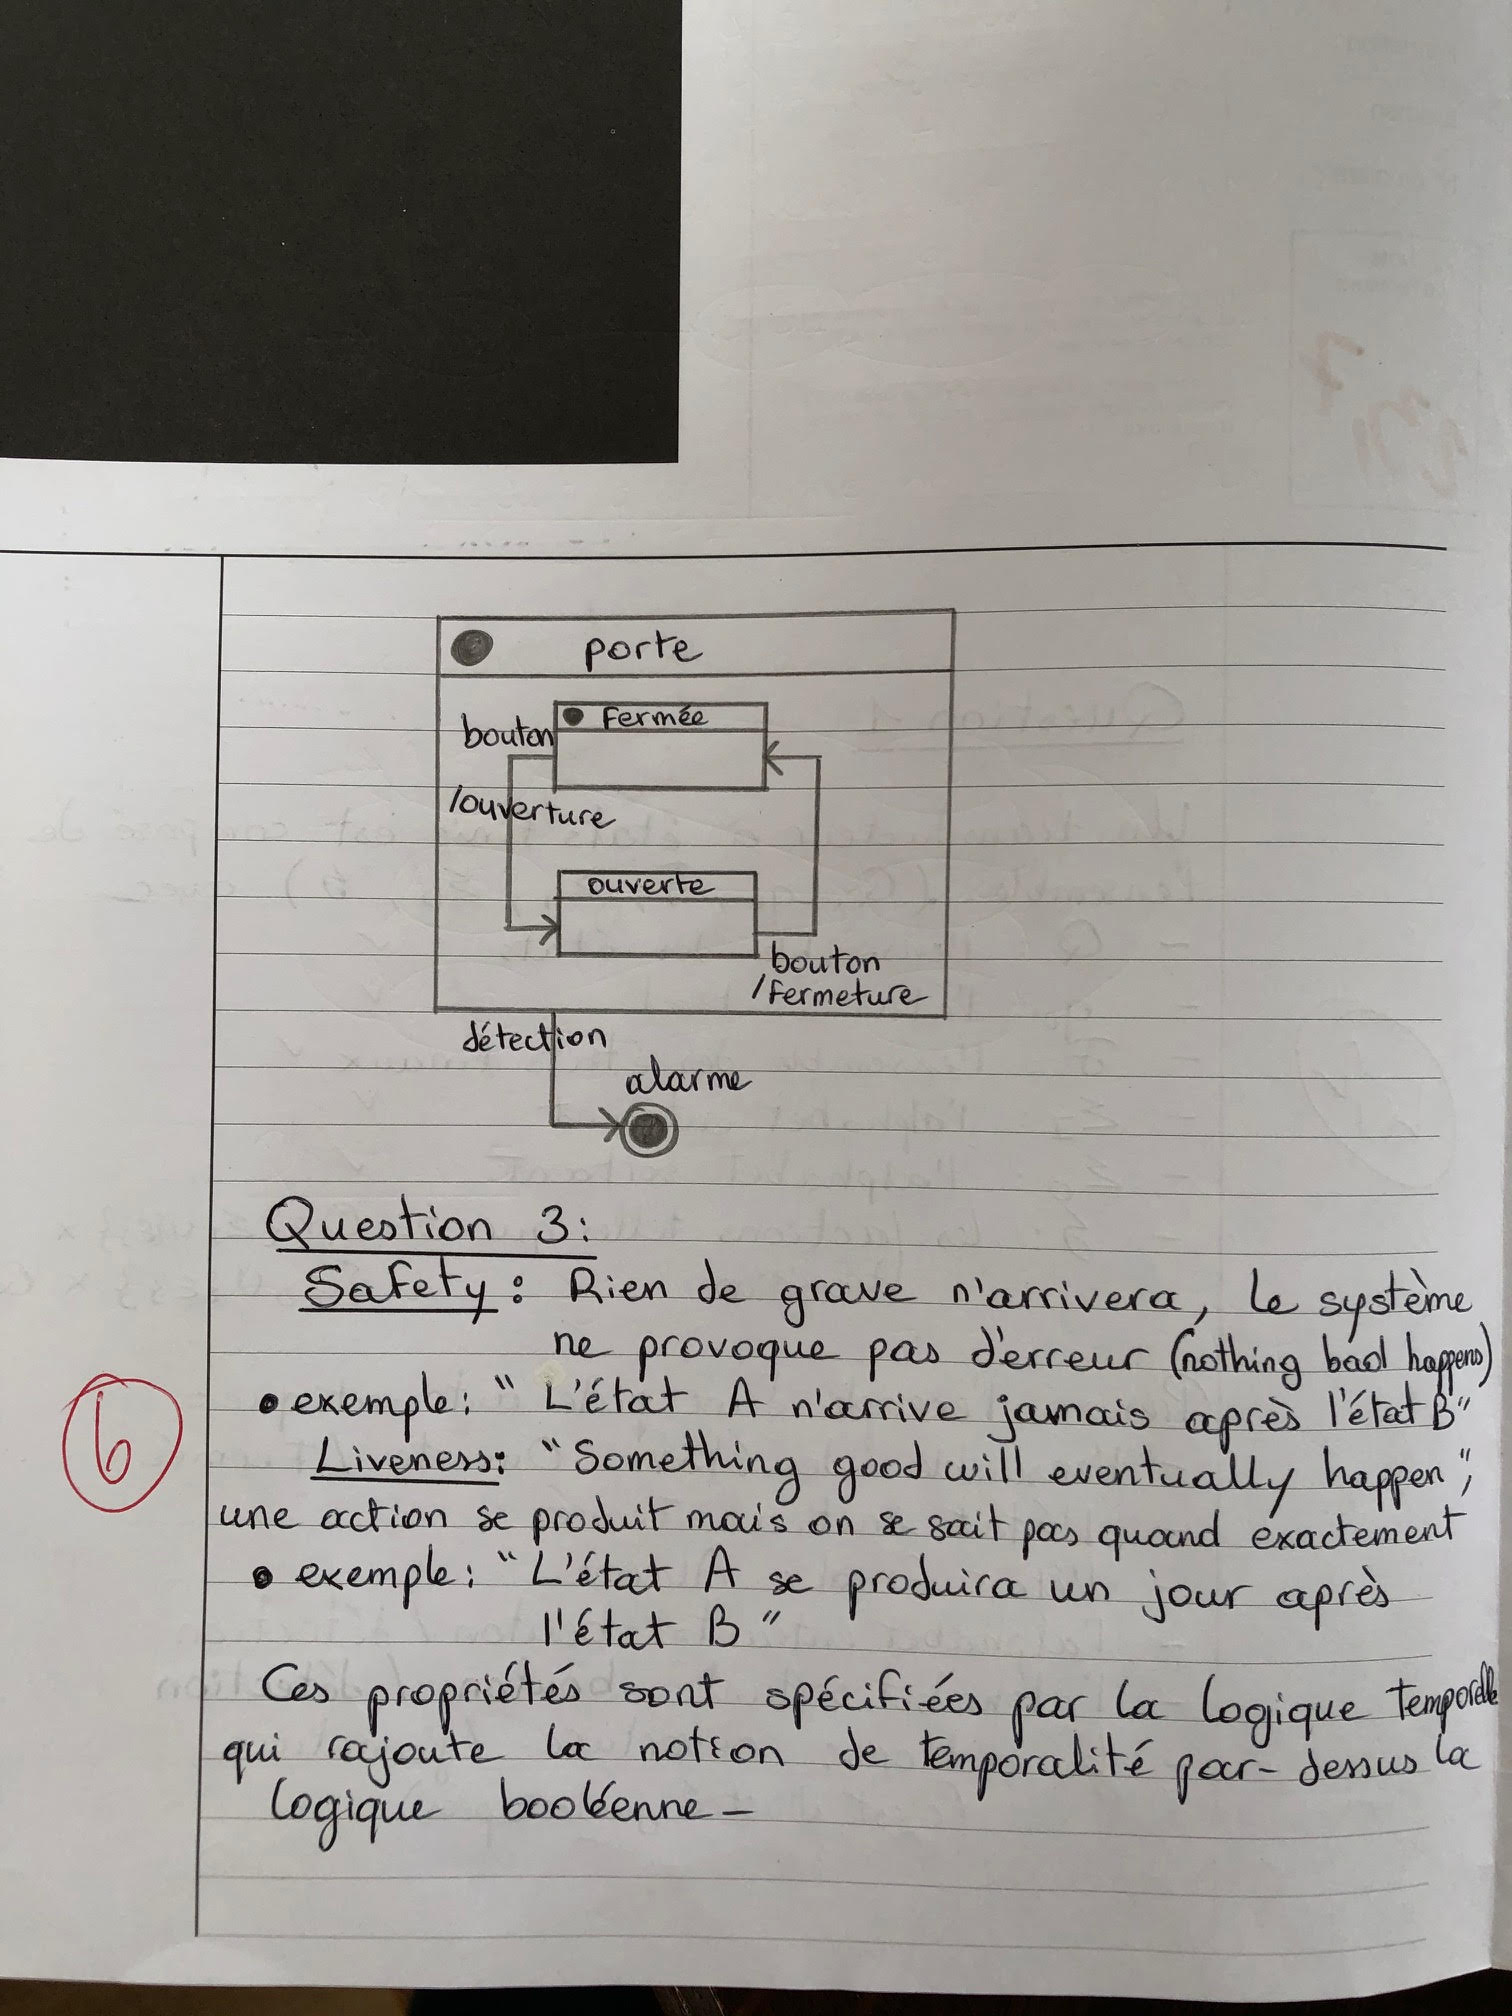 porte
Fermée
bouton
/ouverture
ouverte
bouton
/Fermeture
détection
alarme
Question 3:
Safety : Rien de grave n'arrivera, le système
ne provoque pas d'erreur (nothing bad happens)
• exemple: " L'état A n'arrive jamais après l'état B"
6
Liveness: "Something good will eventually happen",
une action se produit mais on se sait pas quand exactement
• exemple: "L'état A se produira un jour après
l'état B"
Ces propriétés sont spécifiées par la logique temporelle
qui rajoute la notion de temporalité par-dessus la
logique booléenne -